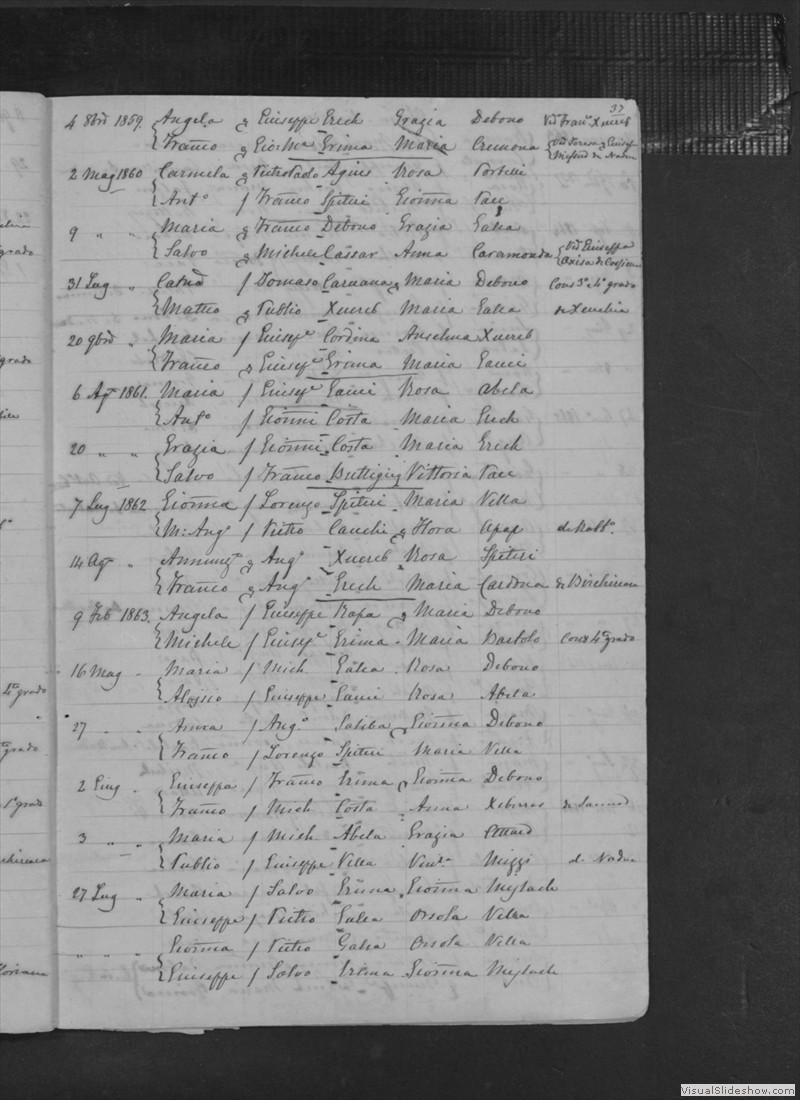 37
4 8bre 1859. Angela & Giuseppe Grech Grazia Debono Vid Franco Xuereb
Franco & Giorma Grima Maria Cremona Vid Teresa
2 Mag 1860 Carmela & PietroPaolo Agius Rosa Portelli
Anto / Franco Spiteri Giorma Pace
9 " " Maria & Franco Debono Grazia Galea
Salvo & Michele Cassar Anna Caramonda Vid Giuseppa
31 Lug " / Tomaso Caruana & Maria Debono Cons 3o e 4o grado
Matteo & Publio Xuereb Maria Galea
20 9bre " Maria / Giuseppe Cordina Anselma Xuereb
Franco & Giuseppe Grima Maria Gauci
6 Ago 1861. Maria / Giuseppe Gauci Rosa Abela
Ango / Gionni Costa Maria Grech
20 " " Grazia / Gionni Costa Maria Grech
Salvo / Franco Buttigieg Vittoria Pace
7 Lug 1862 Giorma / Lorenzo Spiteri Maria Vella
M: Ango / Pietro Cauchi & Flora Apap de Rabto.
14 Ago " Annunza & Ango Xuereb Rosa Spiteri
Franco & Ango Grech Maria Cardona
9 Feb 1863. Angela / Giuseppe Rapa & Maria Debono
Michele / Giuseppe Grima Maria Bartolo Cons 4o grado
16 Mag Maria / Mich Galea Rosa Debono
Aloisio / Giuseppe Gauci Rosa Abela
27 " " / Ango Saliba Giorma Debono
Franco / Lorenzo Spiteri Maria Vella
2 Giug " Giuseppa / Franco Grima & Giorma Debono
Franco / Mich Costa Anna Xiberras
3 " " Maria / Mich Abela Grazia Attard
Publio / Giuseppe Vella Muzzi di Nadur
27 Lug " Maria / Salvo Grima Giorma Myslach
Giuseppe / Pietro Galea Orsola Vella
" " " Giorma / Pietro Galea Orsola Vella
Giuseppe / Salvo Grima Giorma Myslach
VisualSlideshow.com